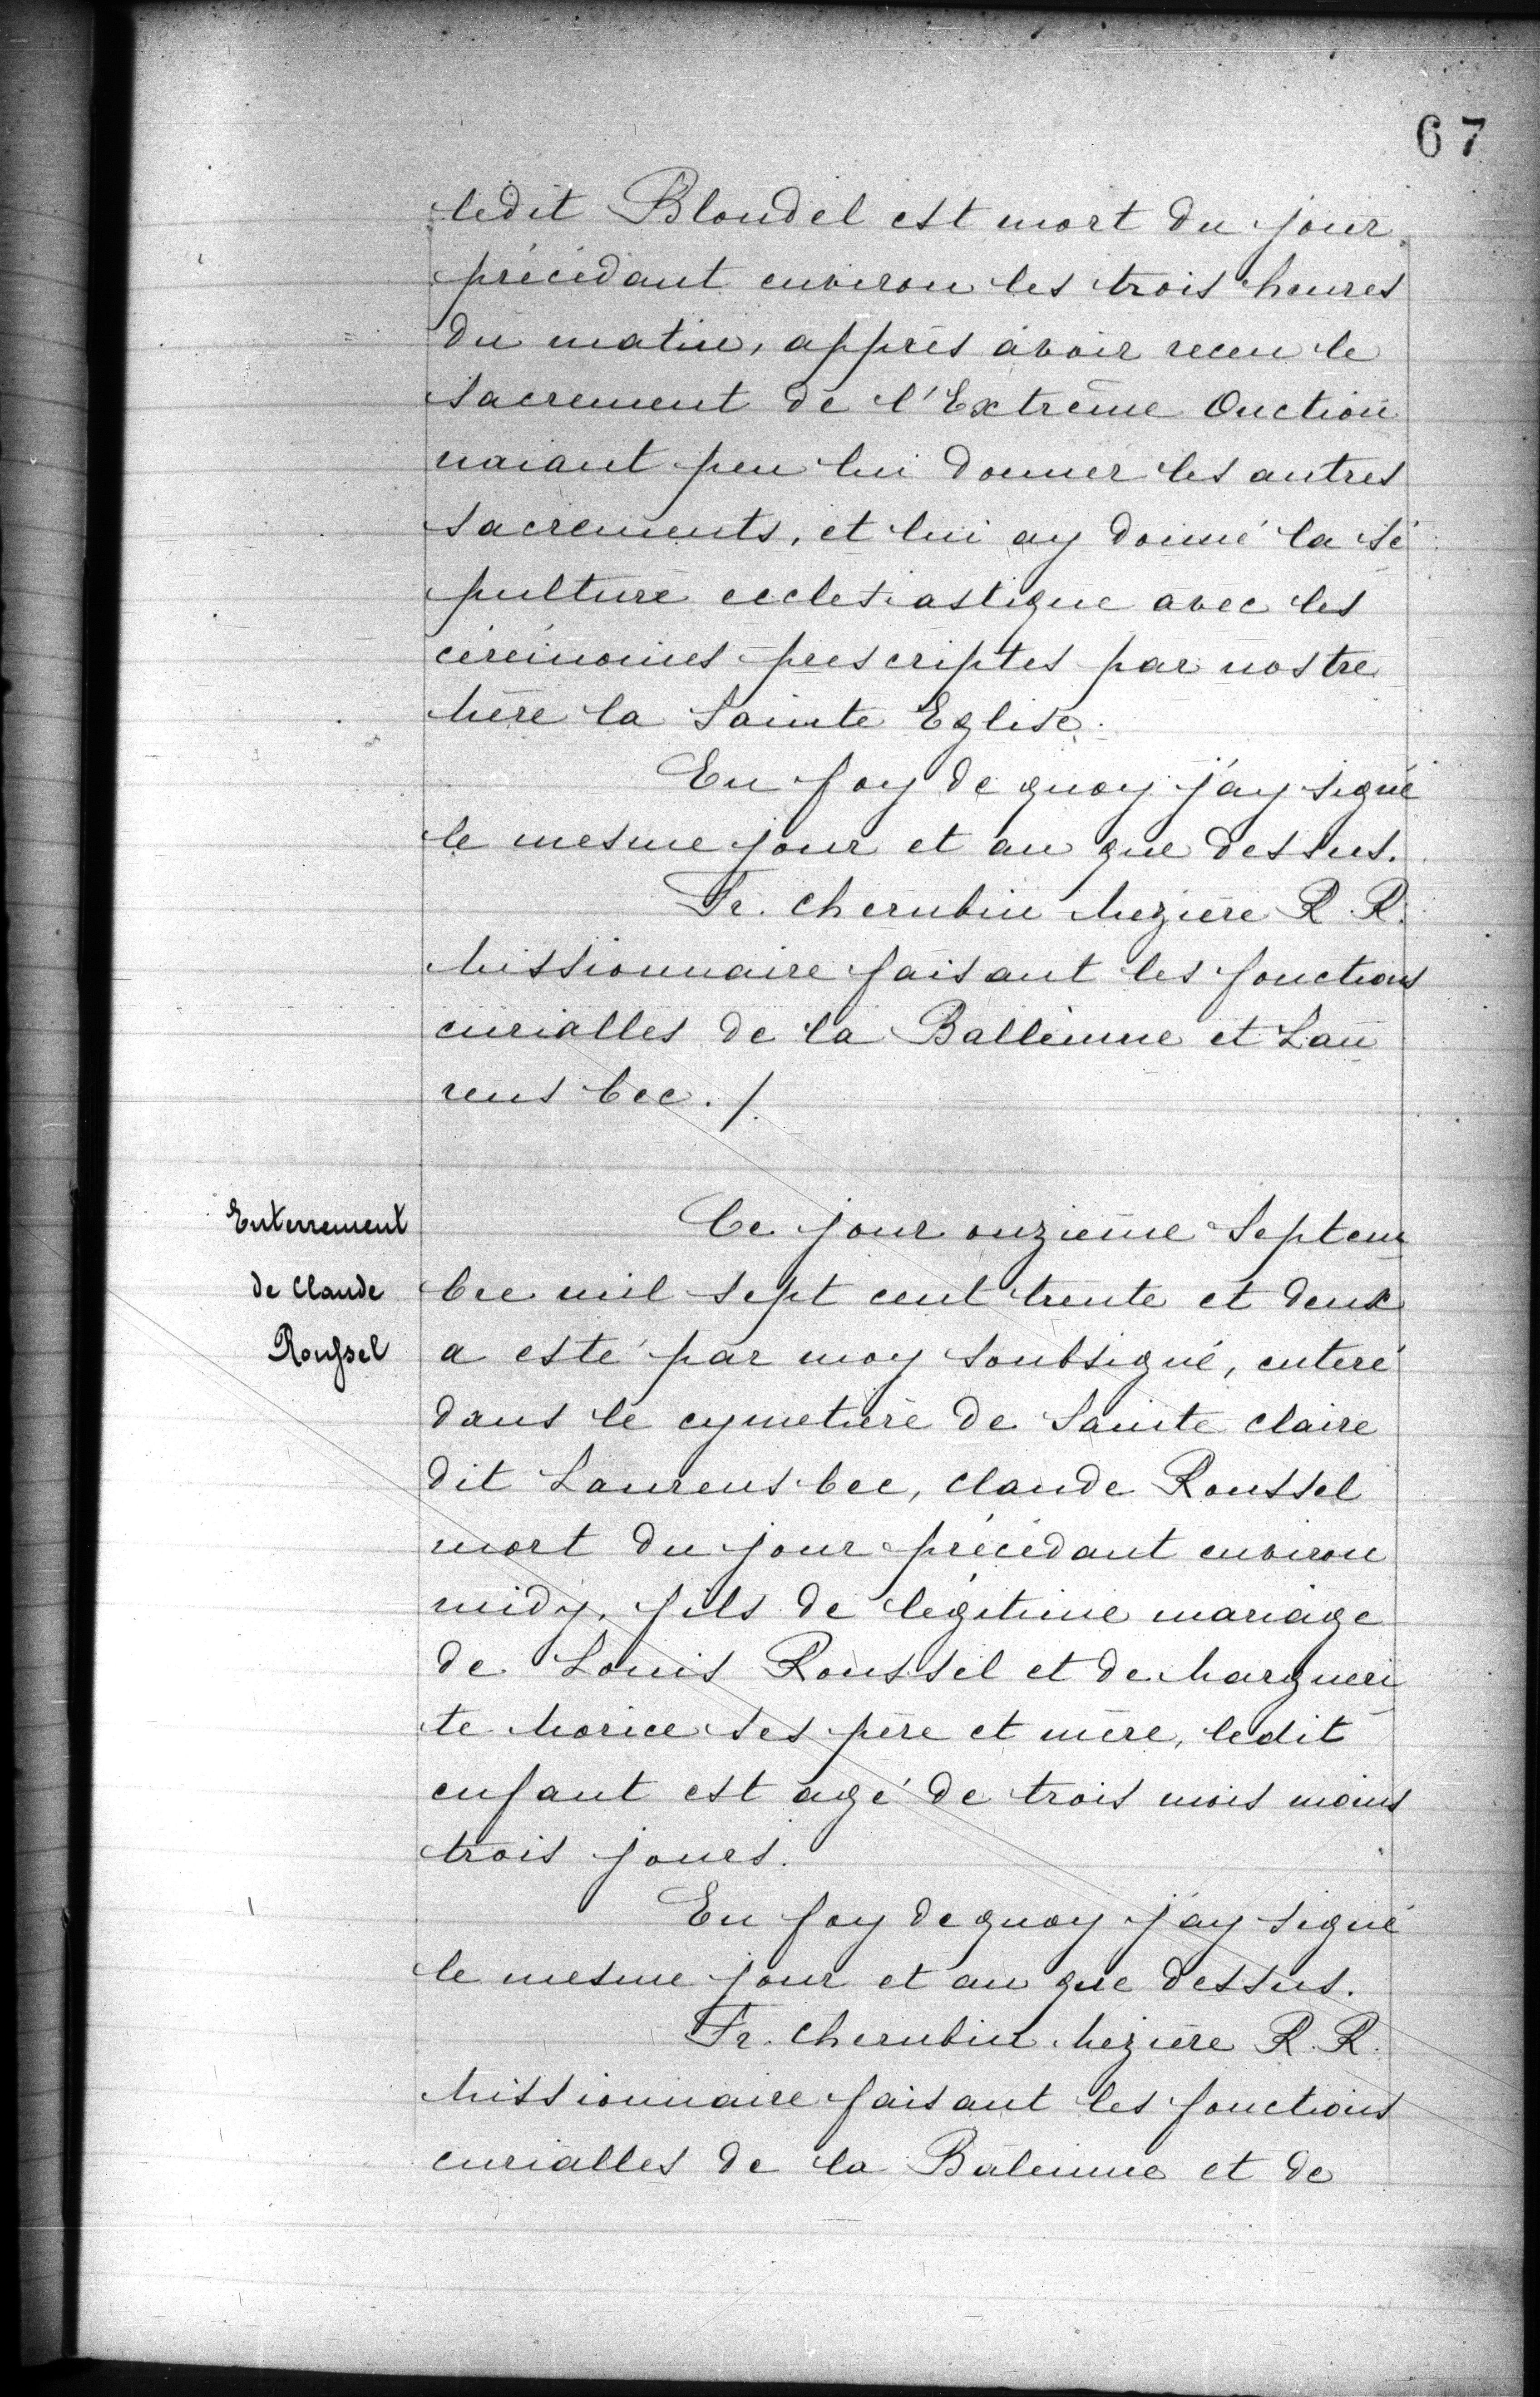 67
ledit Blondel est mort du jour
précédant environ les trois heures
du matin, apprès avoir receu le
sacrement de l'Extrême Onction
naiant peu lui donner les autres
sacrements, et lui ay donné la sé
pulture ecclesiastique avec les
cérémonies prescriptes par nostre
Mère la Sainte Eglise.
En foy de quoy j'ay signé
le mesme jour et an que dessus.
Fr. Cherubin Mezière R. R.
Missionnaire faisant les fonctions
curialles de la Balleinne et Lau
rens bec. /.
Enterrement
de Claude
Roussel
Ce jour onzième Septem
bre mil sept cent trente et deux
a esté par moy soubsigné, enteré
dans le cymetière de Sainte Claire
dit Laurens bec, Claude Roussel
mort du jour précédant environ
midy, fils de légitime mariage
de Louis Roussel et de Margueri
te Morice ses père et mère, ledit
enfant est agé de trois mois moins
trois jours.
En foy de quoy j'ay signé
le mesme jour et an que dessus.
Fr. Cherubin Mezière R. R.
Missionnaire faisant les fonctions
curialles de la Baleinne et de